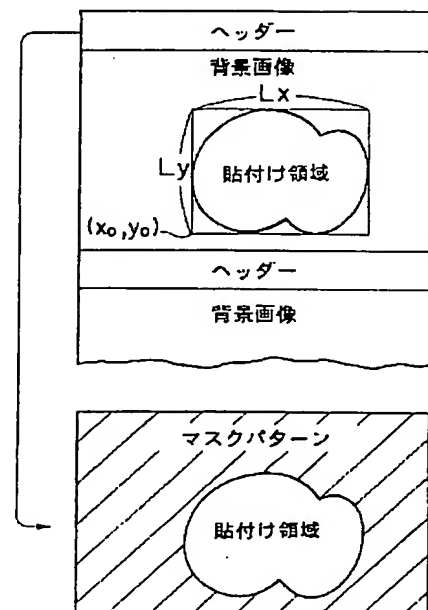 ヘッダー
背景画像
Lx
Ly
貼付け領域
(x₀,y₀)
ヘッダー
背景画像
マスクパターン
貼付け領域